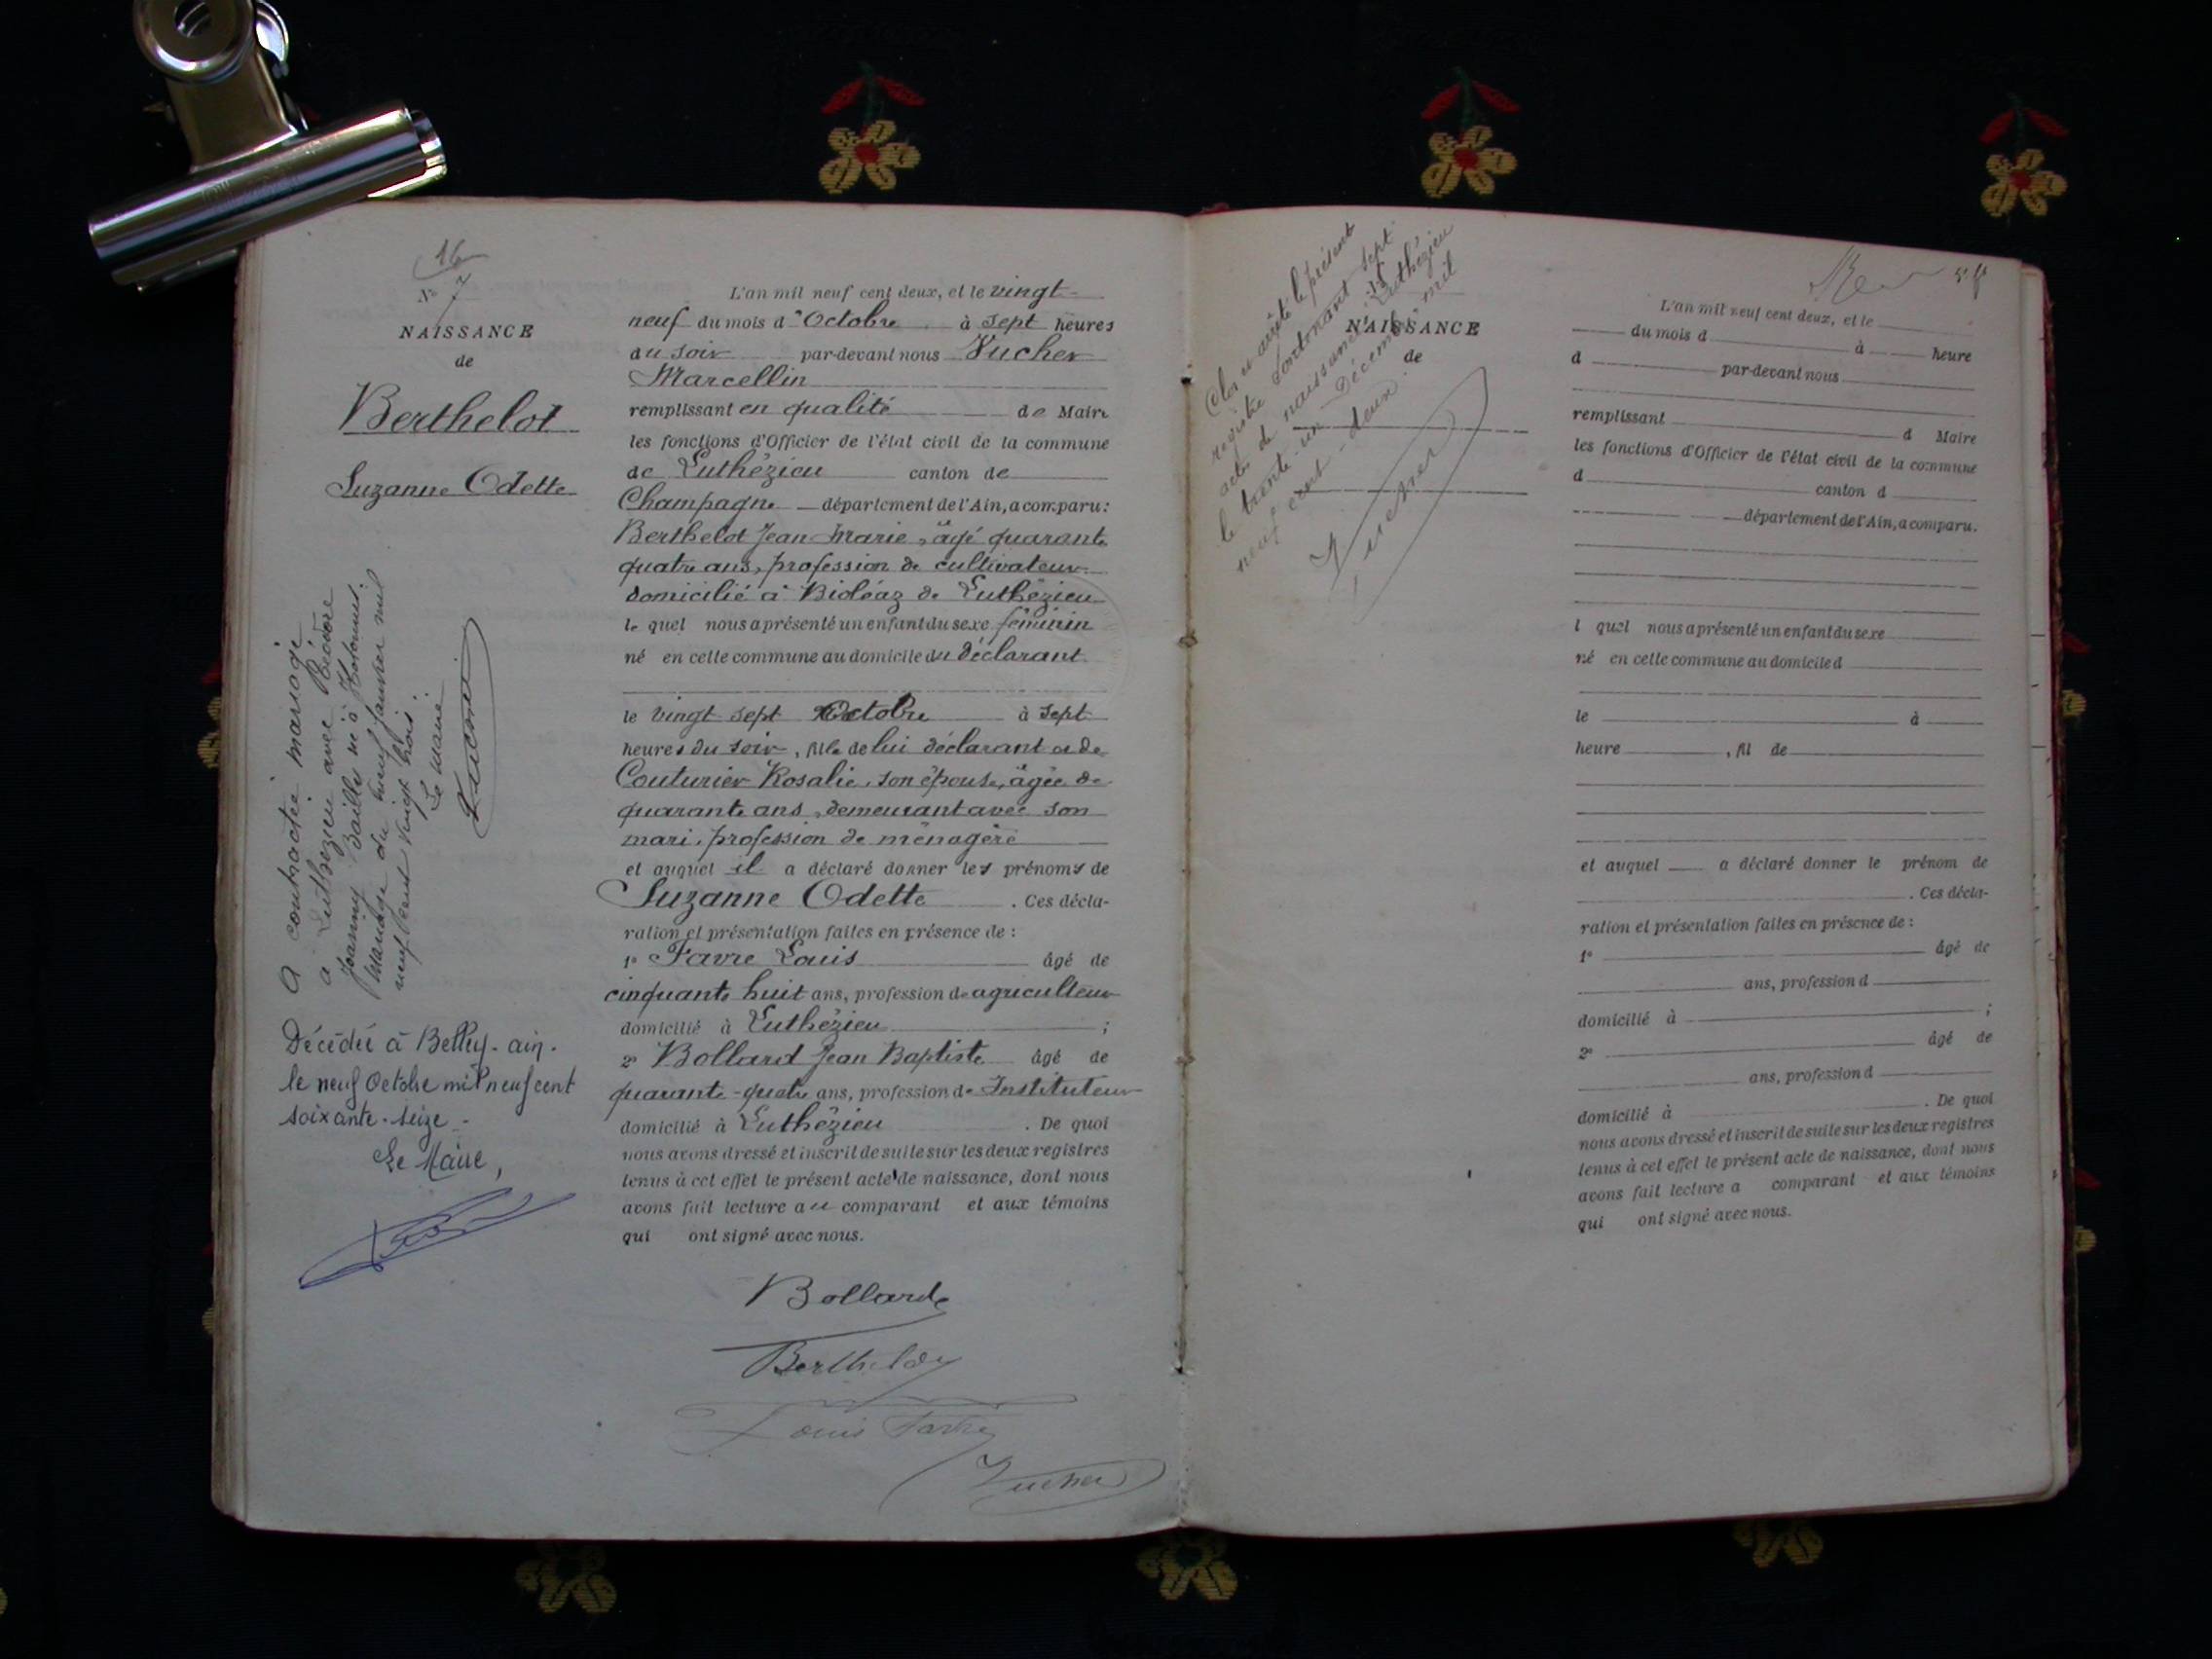 16
N° 7
NAISSANCE
de
Berthelot
Suzanne Odette
A contractée mariage
a Luthézieu avec
Joanny Baille né à Hotonnes
mardi du neuf janvier mil
neuf cent vingt trois
Le Maire
Décédée à Belley-ain.
le neuf Octobre mil neuf cent
soixante-seize -
Le Maire,
L'an mil neuf cent deux, et le vingt-
neuf du mois d'Octobre à sept heures
du soir par-devant nous Vucher
Marcellin
remplissant en qualité de Maire
les fonctions d'Officier de l'état civil de la commune
de Luthézieu canton de
Champagne département de l'Ain, a comparu:
Berthelot Jean Marie, âgé quarante
quatre ans, profession de cultivateur
domicilié à Bioléaz de Luthézieu
le quel nous a présenté un enfant du sexe féminin
né en cette commune au domicile du déclarant
le vingt sept Octobre à sept
heures du soir, fille de lui déclarant et de
Couturier Rosalie, son épouse, âgée de
quarante ans, demeurant avec son
mari, profession de ménagère
et auquel il a déclaré donner les prénoms de
Suzanne Odette . Ces décla-
ration et présentation faites en présence de :
1° Favre Louis âgé de
cinquante huit ans, profession de agriculteur
domicilié à Luthézieu ;
2° Bollard Jean Baptiste âgé de
quarante-quatre ans, profession de Instituteur
domicilié à Luthézieu . De quoi
nous avons dressé et inscrit de suite sur les deux registres
tenus à cet effet le présent acte de naissance, dont nous
avons fait lecture au comparant et aux témoins
qui ont signé avec nous.
Bollard
Berthelot
Louis Favre
Vucher
Clos et arrêté le présent
registre contenant sept
actes de naissance Luthézieu
le trente-un Décembre mil
neuf cent-deux.
Vucher
NAISSANCE
de
L'an mil neuf cent deux, et le
du mois d à heure
d par-devant nous
remplissant d Maire
les fonctions d'Officier de l'état civil de la commune
d canton d
département de l'Ain, a comparu.
l quel nous a présenté un enfant du sexe
né en cette commune au domicile d
le à
heure , fil de
et auquel a déclaré donner le prénom de
. Ces décla-
ration et présentation faites en présence de :
1° âgé de
ans, profession d
domicilié à ;
2° âgé de
ans, profession d
domicilié à . De quoi
nous avons dressé et inscrit de suite sur les deux registres
tenus à cet effet le présent acte de naissance, dont nous
avons fait lecture a comparant et aux témoins
qui ont signé avec nous.